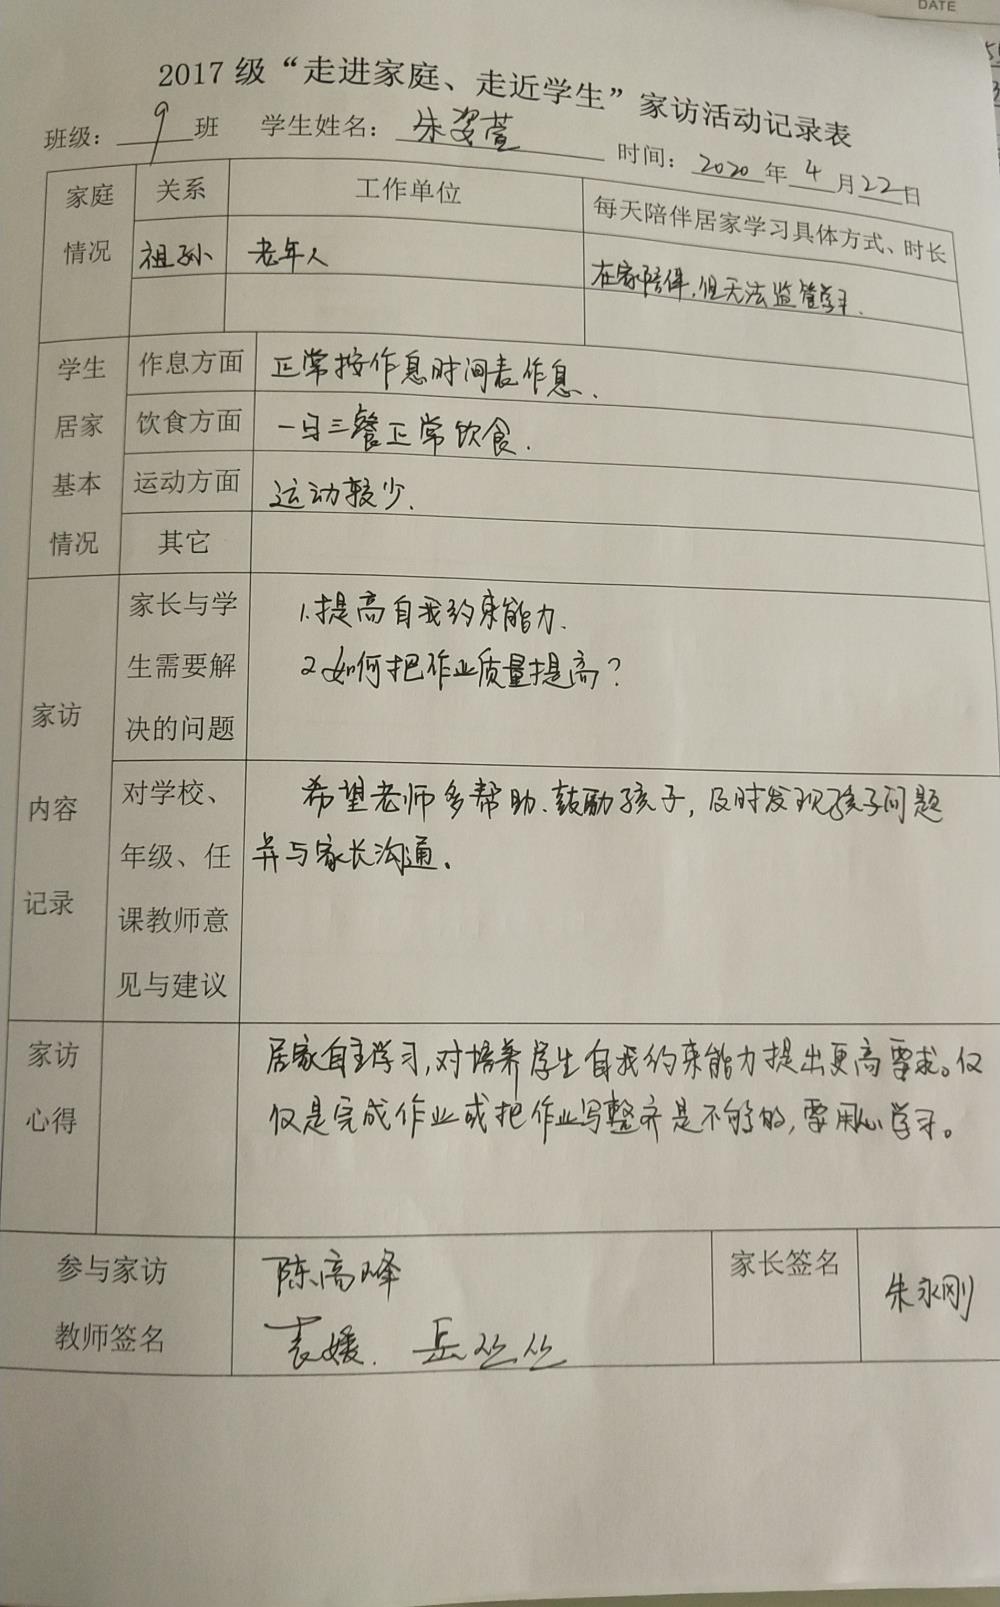 DATE
2017 级“走进家庭、走近学生”家访活动记录表
班级：9班 学生姓名：朱姿萱 时间：2020年4月22日
家庭 关系 工作单位 每天陪伴居家学习具体方式、时长
情况 祖孙 老年人 在家陪伴，但无法监管学习.
学生 作息方面 正常按作息时间表作息.
居家 饮食方面 一日三餐正常饮食.
基本 运动方面 运动较少.
情况 其它
家长与学 1.提高自我约束能力.
生需要解 2.如何把作业质量提高?
家访 决的问题
对学校、 希望老师多帮助、鼓励孩子，及时发现孩子问题
内容
年级、任 并与家长沟通。
记录 课教师意
见与建议
家访 居家自主学习，对培养学生自我约束能力提出更高要求。仅
心得 仅是完成作业或把作业写整齐是不够的，要用心学习。
参与家访 陈高峰 家长签名 朱永刚
教师签名 袁媛. 岳丛丛